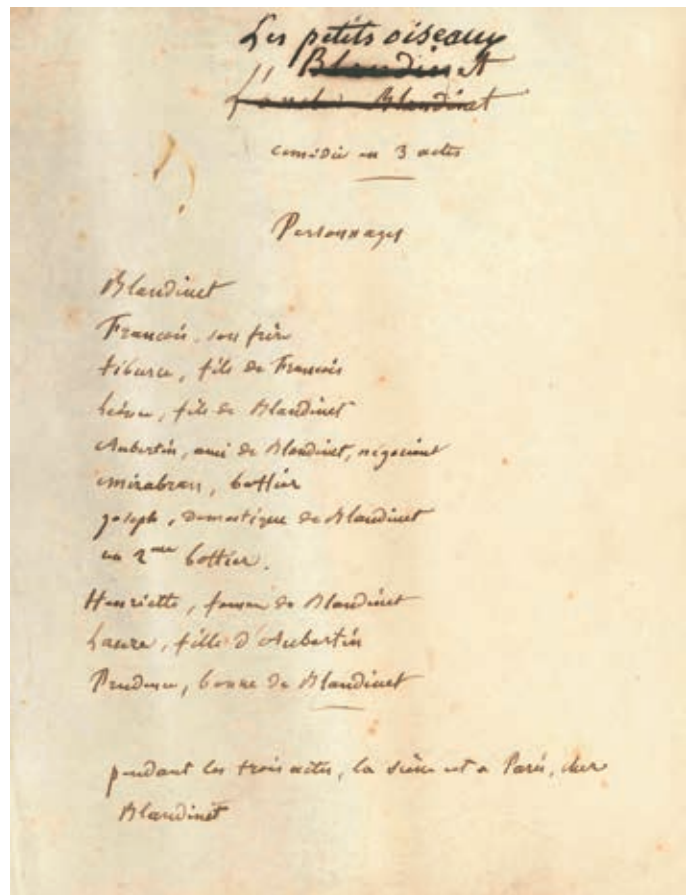 Les petits oiseaux
Blandinet
L'oncle Blandinet
comédie en 3 actes
Personnages
Blandinet
François, son frère
tiburce, fils de François
Léonce, fils de Blandinet
Aubertin, ami de Blandinet, négociant
mizabran, bottier
joseph, domestique de Blandinet
un 2me bottier.
Henriette, femme de Blandinet
Laure, fille d'Aubertin
Prudence, bonne de Blandinet
pendant les trois actes, la scène est a Paris, chez
Blandinet